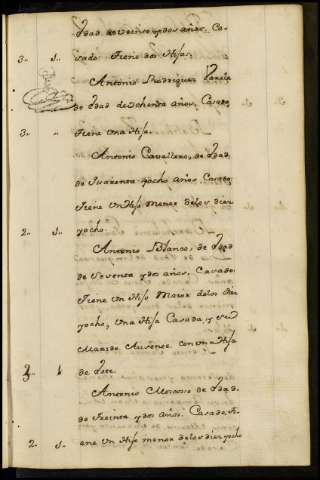 edad de treinta y dos años, Ca-
3.. s.. sado Tiene dos Hijas.
Antonio Rodriguez Varela
de edad de ochenta años, Casado,
3.. " Tiene Una Hija.
Antonio Cavallero, de edad
de Quarenta y ocho años Casado,
Tiene Un Hijo menor de los diez
2.. s.. y ocho.
Antonio Blanco, de edad
de Sesenta y dos años, Casado,
Tiene Un Hijo Maior de los Diez
y ocho, Una Hija Casada, y su
Marido Ausente con una Hija
de este.
Antonio Moroso de edad
de Treinta y dos años, Casado, ti-
2.. s.. ene un Hijo menor de los diez y ocho